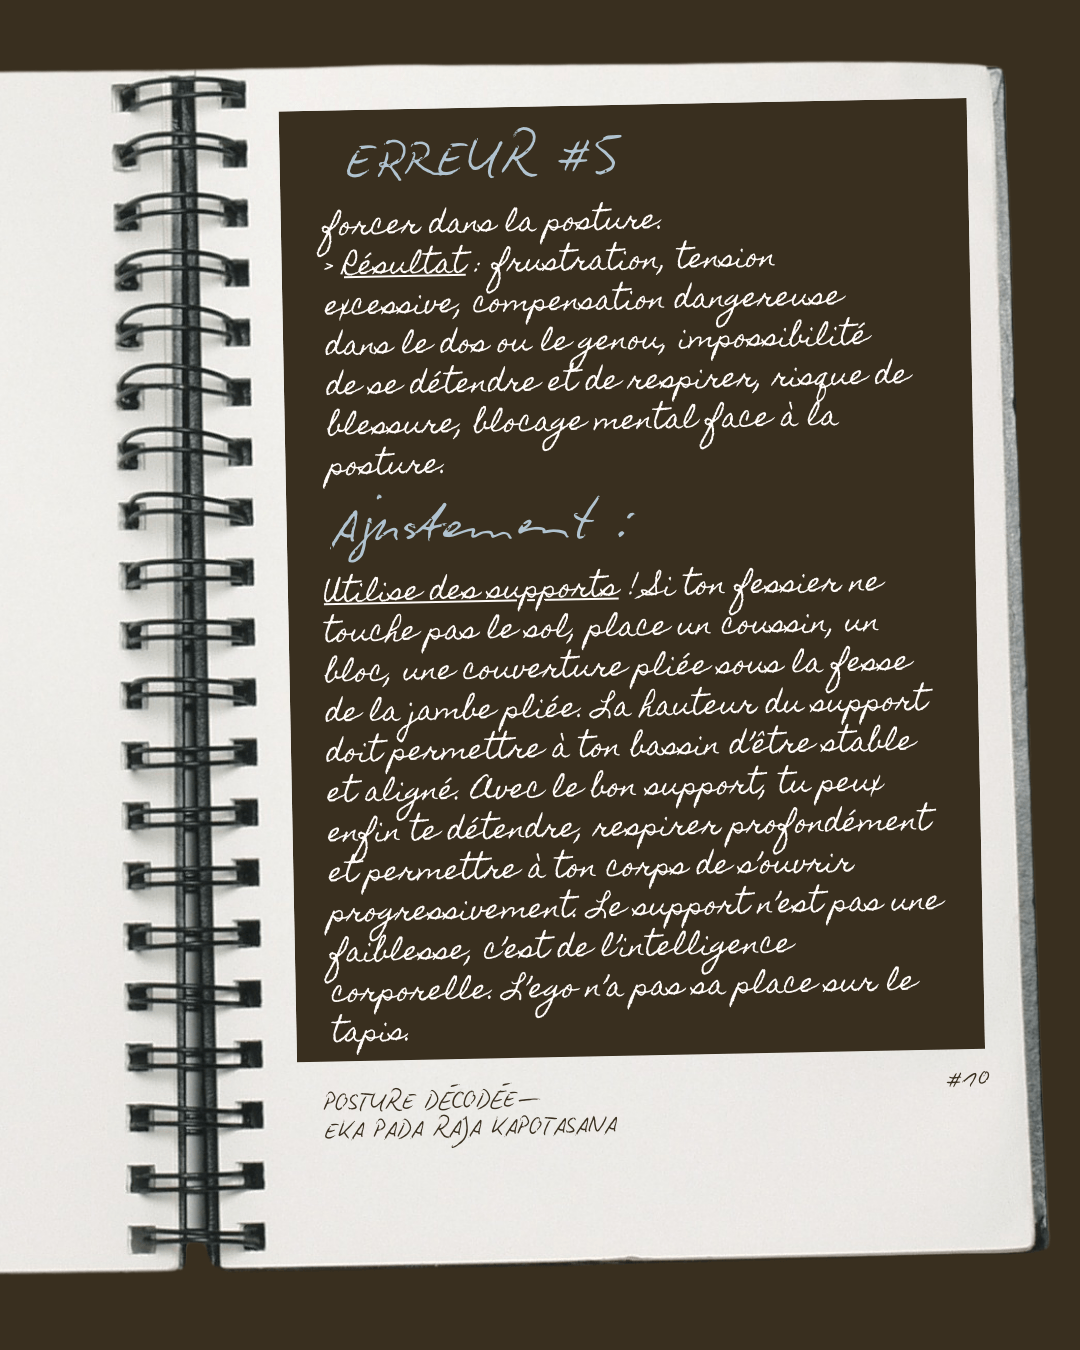 ERREUR #5
forcer dans la posture.
> Résultat : frustration, tension
excessive, compensation dangereuse
dans le dos ou le genou, impossibilité
de se détendre et de respirer, risque de
blessure, blocage mental face à la
posture.
Ajustement :
Utilise des supports ! Si ton fessier ne
touche pas le sol, place un coussin, un
bloc, une couverture pliée sous la fesse
de la jambe pliée. La hauteur du support
doit permettre à ton bassin d'être stable
et aligné. Avec le bon support, tu peux
enfin te détendre, respirer profondément
et permettre à ton corps de s'ouvrir
progressivement. Le support n'est pas une
faiblesse, c'est de l'intelligence
corporelle. L'ego n'a pas sa place sur le
tapis.
#10
POSTURE DÉCODÉE—
EKA PADA RAJA KAPOTASANA